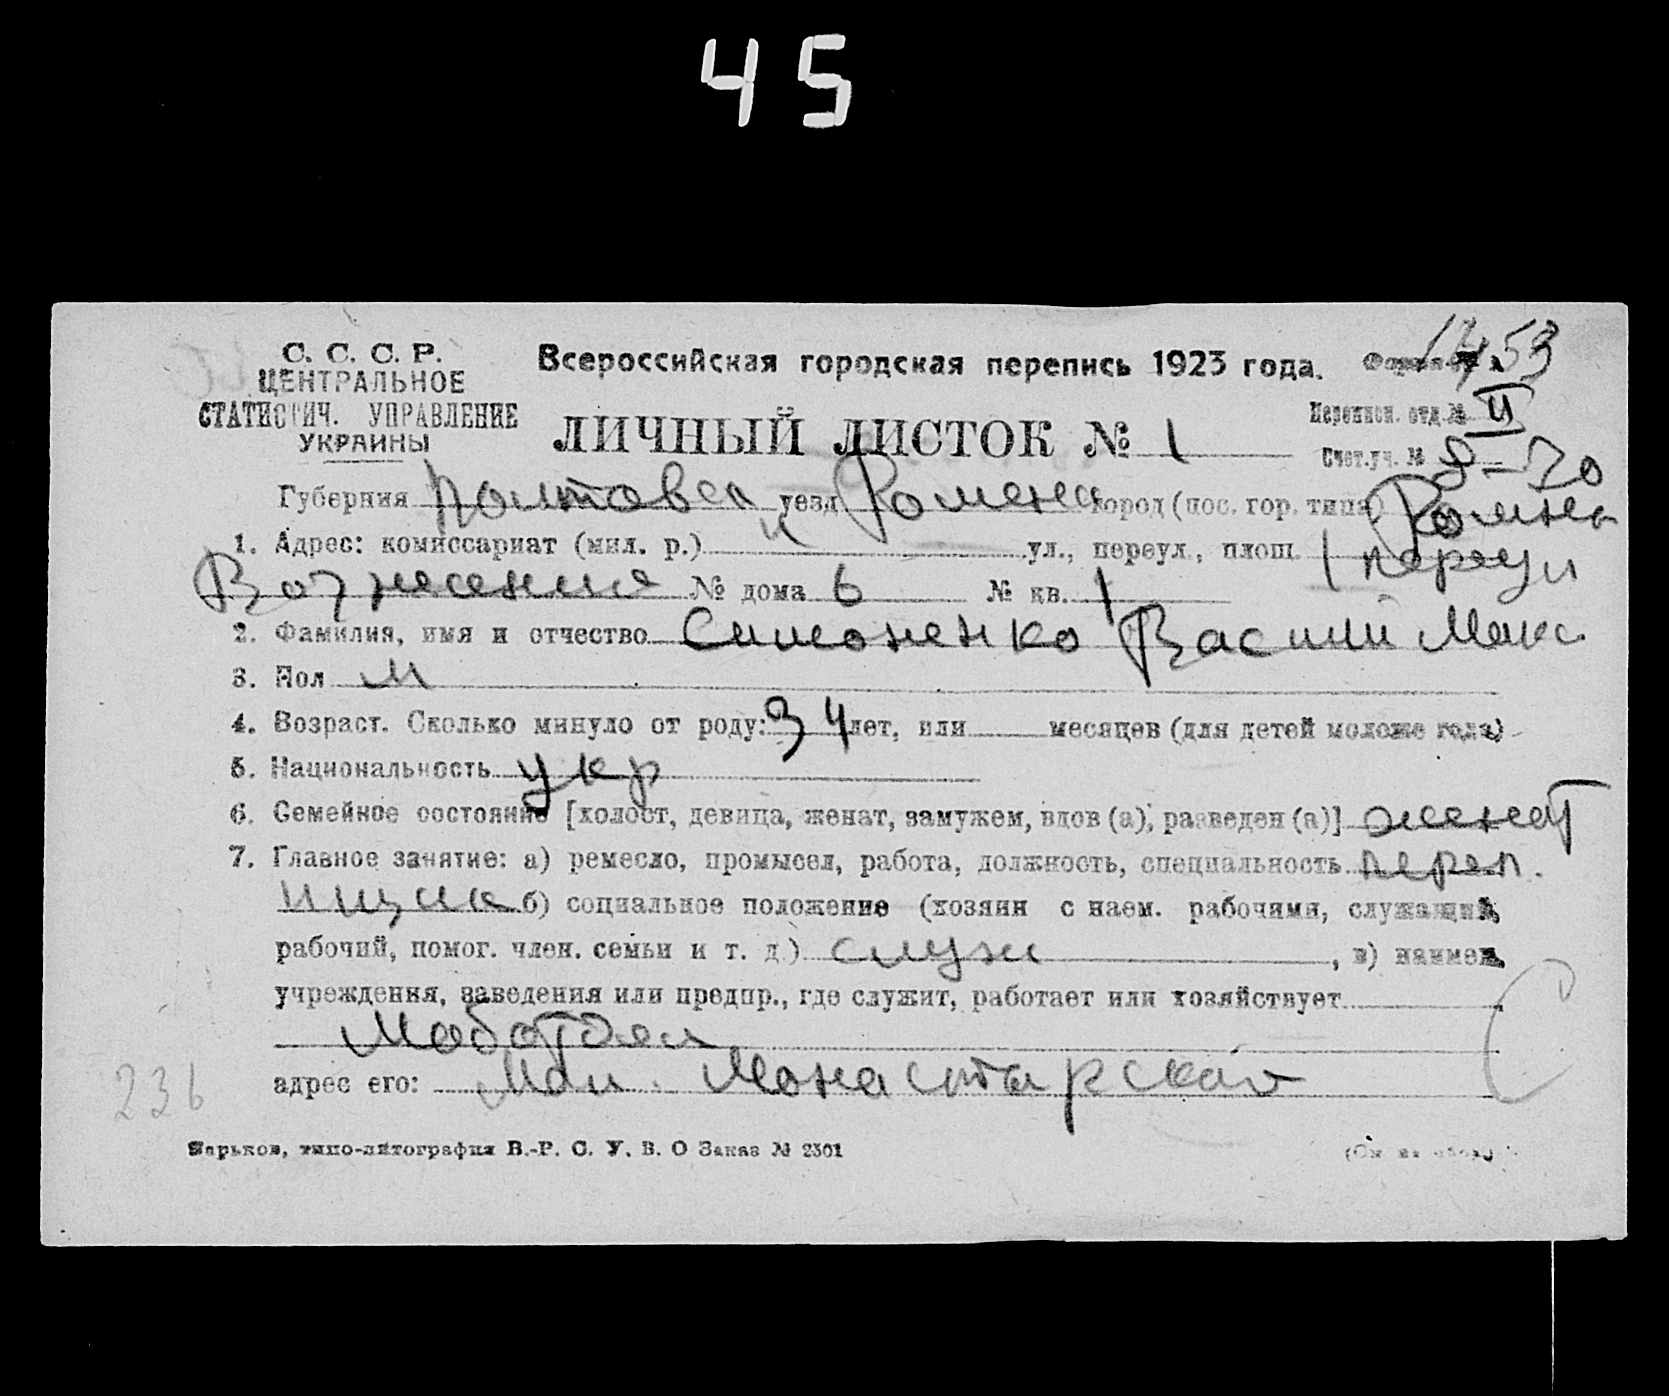 45
С. С. С. Р.
ЦЕНТРАЛЬНОЕ
СТАТИСТИЧ. УПРАВЛЕНИЕ
УКРАИНЫ
Всероссийская городская перепись 1923 года. Форма
53
ЛИЧНЫЙ ЛИСТОК № 1
Переписн. отд. № II
Счет. уч. № 8-70
Губерния Полтавск уезд Роменск город (пос. гор. типа) Ромен
1. Адрес: комиссариат (мил. р.) ул., переул., площ. 1 переул
Вознесения № дома 6 № кв. 1
2. Фамилия, имя и отчество Симоненко Василий Макс
3. Пол М
4. Возраст. Сколько минуло от роду: 34 лет, или месяцев (для детей моложе года)
5. Национальность укр
6. Семейное состояние [холост, девица, женат, замужем, вдов (а), разведен (а)] женат
7. Главное занятие: а) ремесло, промысел, работа, должность, специальность переп.
ищик б) социальное положение (хозяин с наем. рабочими, служащий,
рабочий, помог. член. семьи и т. д.) служ , в) наимен.
учреждения, заведения или предпр., где служит, работает или хозяйствует
Моботдел
адрес его: Монастырская
236
Харьков, типо-литография В.-Р. С. У. В. О Заказ № 2301